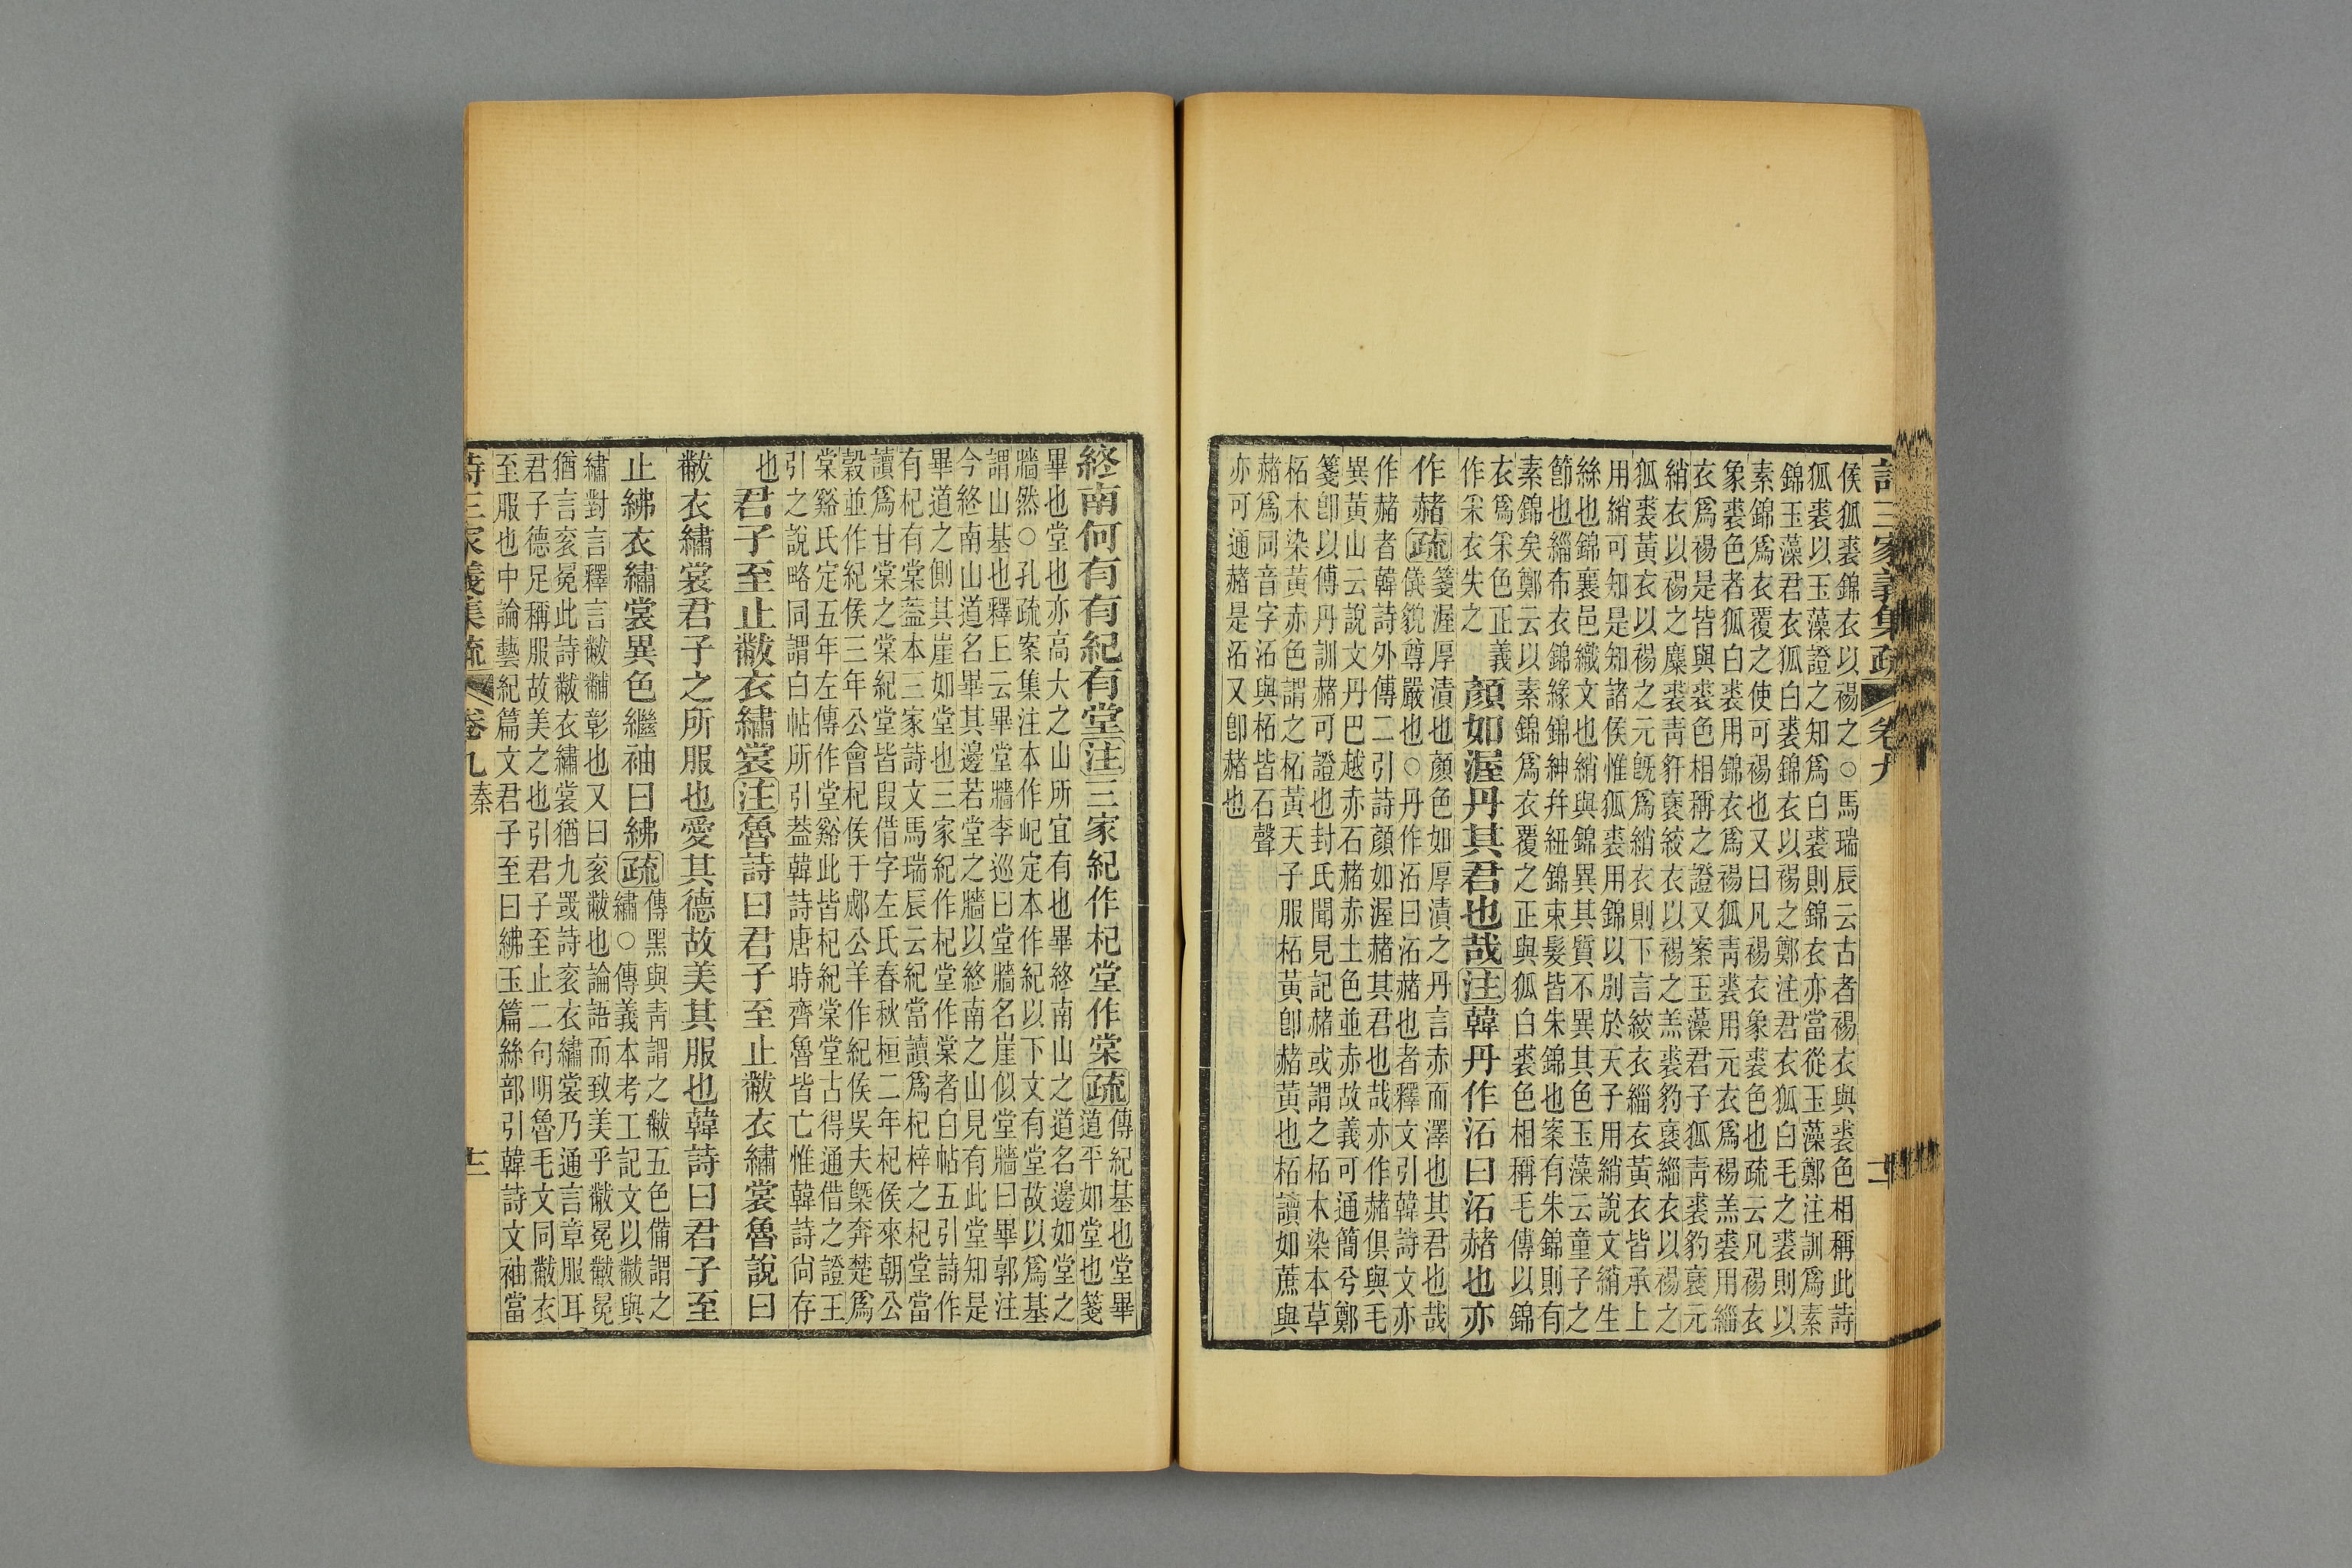 詩三家義集疏 卷九
侯狐裘錦衣以裼之○馬瑞辰云古者裼衣與裘色相稱此詩
狐裘以玉藻證之知爲白裘則錦衣亦當從玉藻鄭注訓爲素
錦玉藻君衣狐白裘錦衣以裼之鄭注君衣狐白毛之裘則以
素錦爲衣覆之使可裼也又曰凡裼衣象裘色也疏云凡裼衣
象裘色者狐白裘用錦衣爲裼狐青裘用元衣爲裼羔裘用緇
衣爲裼是皆與裘色相稱之證又案玉藻君子狐青裘豹褎元
綃衣以裼之麛裘青豻褎絞衣以裼之羔裘豹褎緇衣以裼之
狐裘黃衣以裼之元旣爲綃衣則下言絞衣緇衣黃衣皆承上
用綃可知是知諸侯惟狐裘用錦以別於天子用綃說文綃生
絲也錦襄邑織文也綃與錦異其質不異其色玉藻云童子之
節也緇布衣錦緣錦紳幷紐錦束髮皆朱錦也案有朱錦則有
素錦矣鄭云以素錦爲衣覆之正與狐白裘色相稱毛傳以錦
衣爲采色正義
作采衣失之
顏如渥丹其君也哉注韓丹作沰曰沰赭也亦
作赭疏
箋渥厚漬也顏色如厚漬之丹言赤而澤也其君也哉
儀貌尊嚴也○丹作沰曰沰赭也者釋文引韓詩文亦
作赭者韓詩外傳二引詩顏如渥赭其君也哉亦作赭俱與毛
異黃山云說文丹巴越赤石赭赤土色並赤故義可通簡兮鄭
箋卽以傅丹訓赭可證也封氏聞見記赭或謂之柘木染本草
柘木染黃赤色謂之柘黃天子服柘黃卽赭黃也柘讀如蔗與
赭爲同音字沰與柘皆石聲
亦可通赭是沰又卽赭也
終南何有有紀有堂注三家紀作杞堂作棠疏
傳紀基也堂畢
道平如堂也箋
畢也堂也亦高大之山所宜有也畢終南山之道名邊如堂之
牆然○孔疏案集注本作屺定本作紀以下文有堂故以爲基
謂山基也釋上云畢堂牆李巡曰堂牆名崖似堂牆曰畢郭注
今終南山道名畢其邊若堂之牆以終南之山見有此堂知是
畢道之側其崖如堂也三家紀作杞堂作棠者白帖五引詩作
有杞有棠蓋本三家詩文馬瑞辰云紀當讀爲杞梓之杞堂當
讀爲甘棠之棠紀堂皆叚借字左氏春秋桓二年杞侯來朝公
穀並作紀侯三年公會杞侯于郕公羊作紀侯吳夫槩奔楚爲
棠谿氏定五年左傳作堂谿此皆杞紀棠堂古得通借之證王
引之說略同謂白帖所引蓋韓詩唐時齊魯皆亡惟韓詩尙存
也
君子至止黻衣繡裳注魯詩曰君子至止黻衣繡裳魯說曰
黻衣繡裳君子之所服也愛其德故美其服也韓詩曰君子至
止紼衣繡裳異色繼袖曰紼疏
傳黑與青謂之黻五色備謂之
繡○傳義本考工記文以黻與
繡對言釋言黻黼彰也又曰衮黻也論語而致美乎黻冕黻冕
猶言衮冕此詩黻衣繡裳猶九罭詩衮衣繡裳乃通言章服耳
君子德足稱服故美之也引君子至止二句明魯毛文同黻衣
至服也中論藝紀篇文君子至曰紼玉篇絲部引韓詩文袖當
詩三家義集疏 卷九 秦 十二